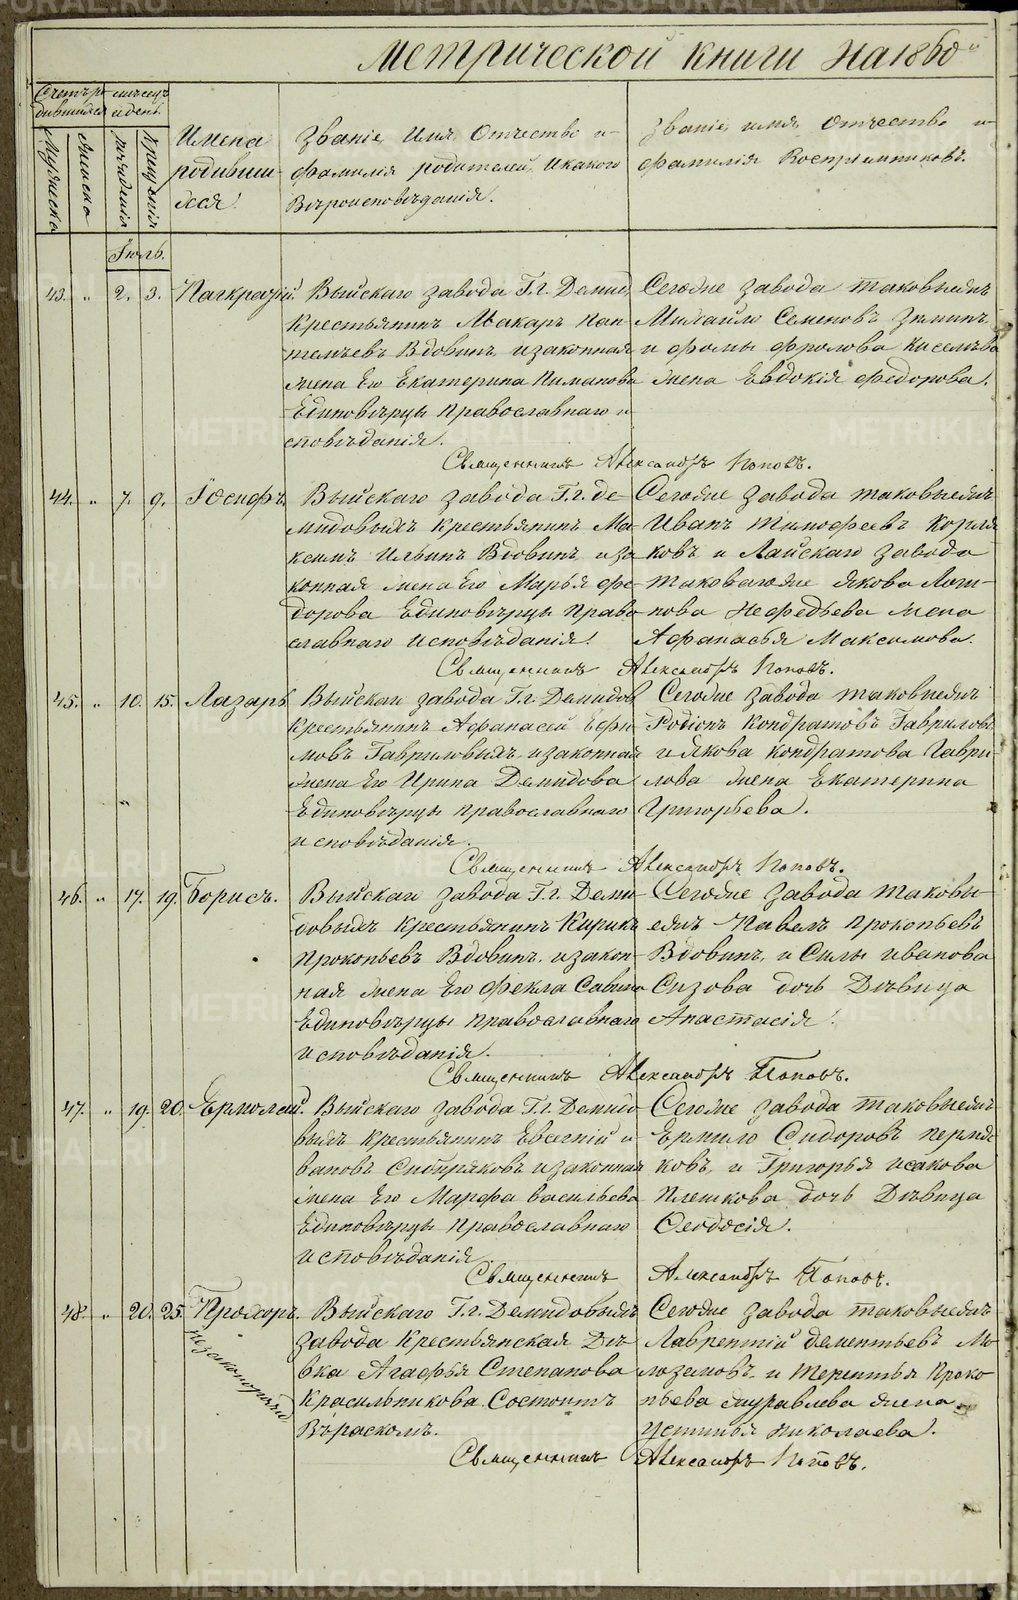 Метрической книги на 1860й
Счетъ ро- мѣсецъ
дившихся и день.
Мужеска
Женска
рожденія
крещенія
Имена
родивши-
хся.
Званіе, Имя, Отчество и
фамилія родителей, и какого
Вѣроисповѣданія.
Званіе, имя, отчество и
фамилія Воспріемниковъ.
Іюль.
43. " 2. 3. Панкратій.
Выйскаго завода Г.г. Демид.
крестьянинъ Макаръ Пан-
телѣевъ Вдовинъ, и законная
жена Его Екатерина Пиманова
Единовѣрцы православнаго и
сповѣданія.
Сегоже завода таковыхжъ
Михайло Семеновъ Зиминъ
и Фомы Фролова Киселѣва
жена Евдокія Федорова.
Священникъ Александръ Поповъ.
44. " 7. 9. Іосифъ
Выйскаго завода Г.г. Де-
мидовыхъ крестьянинъ Ма-
ксимъ Ильинъ Вдовинъ и за
конная жена Его Марья Фе-
дорова Единовѣрцы право
славнаго исповѣданія.
Сегоже завода таковыхжъ
Иванъ Тимофеевъ Корля
ковъ и Лайскаго завода
таковагоже Якова Логи-
нова Нефедьева жена
Афанасья Максимова.
Священникъ Александръ Поповъ.
45. " 10. 15. Лазарь
Выйскаг завода Г.г. Демидов
крестьянинъ Афанасей Ефи-
мовъ Гавриловыхъ и законная
жена Его Ирина Демидова
Единовѣрцы православнаго
исповѣданія.
Сегоже завода таковыхжъ
Родіонъ Кондратовъ Гавриловъ
и Якова Кондратова Гаври
лова жена Екатерина
Григорьева.
Священникъ Александръ Поповъ.
46. " 17. 19. Борисъ.
Выйскаг завода Г.г. Деми-
довыхъ крестьянинъ Кирикъ
Прокопьевъ Вдовинъ. и закон-
ная жена Его Фекла Савина
Единовѣрцы православнаго
исповѣданія.
Сегоже завода таковы-
хжъ Павелъ Прокопьевъ
Вдовинъ, и Силы Иванова
Сизова дочь Дѣвица
Анастасія.
Священникъ Александръ Поповъ.
47. " 19. 20. Ермолай.
Выйскаго завода Г.г. Демидо
выхъ крестьянинъ Евсегній и
вановъ Сибиряковъ и законная
жена Его Марфа Васильева
Единовѣрцы православнаго
исповѣданія.
Сегоже завода таковыхжъ
Ермило Сидоровъ Пермя
ковъ, и Григорья Исакова
Плешкова дочь Дѣвица
Ѳеодосія.
Священникъ Александръ Поповъ.
48. " 20. 25. Прохоръ.
незаконорожд
Выйскаго Г.г. Демидовыхъ
завода Крестьянская Дѣ-
вка Агафья Степанова
Красильникова. Состоитъ
Врасколѣ.
Сегоже завода таковыхжъ
Лаврентій Дементьевъ Мо
лоземовъ. и Терентья Проко
пьева Журавлева жена
Устинья Николаева.
Священникъ Александръ Поповъ.